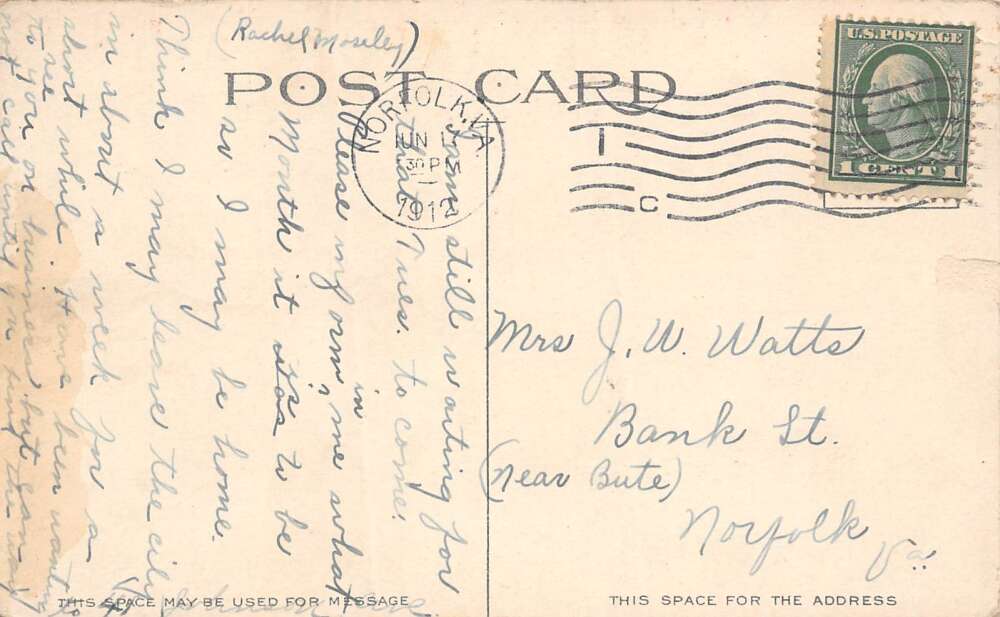 (Rachel Moseley)
POST CARD
NORFOLK, VA.
JUN 1
30 PM
1912
1
C
U.S. POSTAGE
1 CENT 1
Am still waiting for
that Tues. to come.
Please inform me what
in
Month it was to be
is
as I may be home.
Think I may leave the city
in about a week for a
short while. Have been wanting
to see
to you on business but can
not call until I find the way
Mrs J. W. Watts
Bank St.
(Near Bute)
Norfolk
Va.
THIS SPACE MAY BE USED FOR MESSAGE
THIS SPACE FOR THE ADDRESS